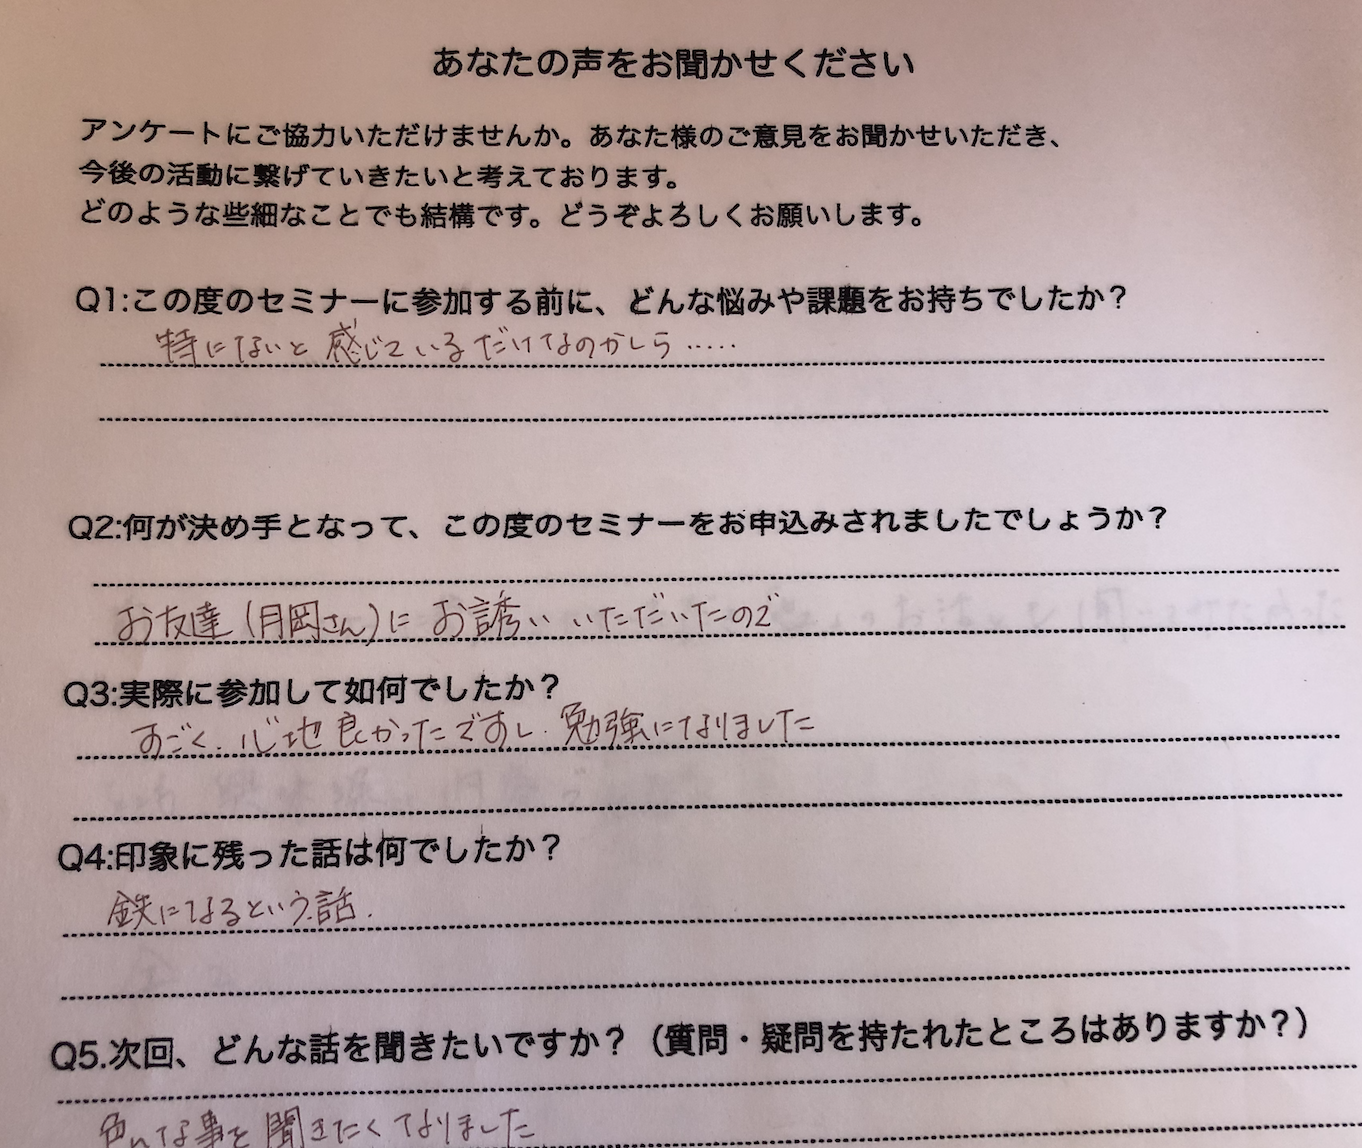 あなたの声をお聞かせください
アンケートにご協力いただけませんか。あなた様のご意見をお聞かせいただき、
今後の活動に繋げていきたいと考えております。
どのような些細なことでも結構です。どうぞよろしくお願いします。
Q1:この度のセミナーに参加する前に、どんな悩みや課題をお持ちでしたか？
特にないと感じているだけなのかしら……
Q2:何が決め手となって、この度のセミナーをお申込みされましたでしょうか？
お友達(月岡さん)にお誘いいただいたので
Q3:実際に参加して如何でしたか？
すごく、心地良かったですし、勉強になりました
Q4:印象に残った話は何でしたか？
鉄になるという話.
Q5.次回、どんな話を聞きたいですか？（質問・疑問を持たれたところはありますか？）
色んな事を聞きたくなりました